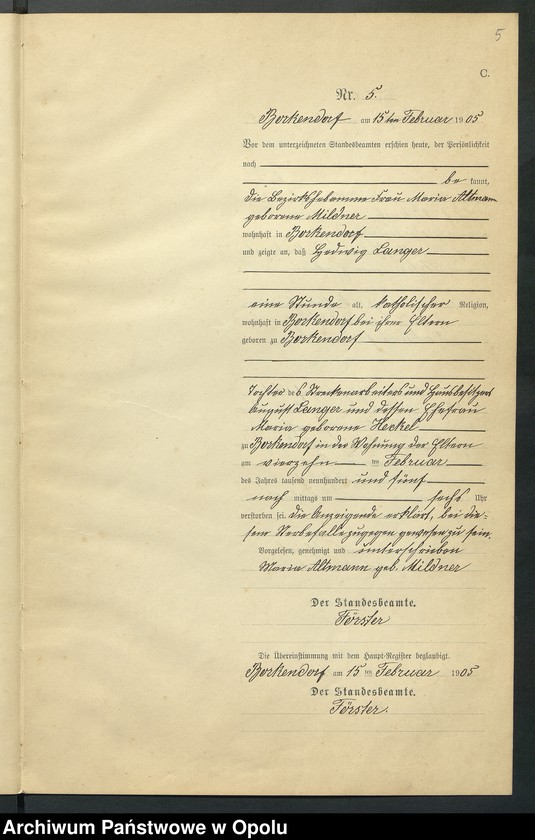 5
C.
Nr. 5.
Borkendorf am 15ten Februar 1905
Vor dem unterzeichneten Standesbeamten erschien heute, der Persönlichkeit
nach
be kannt,
die Bezirkshebamme Frau Maria Altmann
geborene Mildner
wohnhaft in Borkendorf
und zeigte an, daß Hedwig Langer
eine Stunde alt, katholischer Religion,
wohnhaft in Borkendorf bei ihren Eltern
geboren zu Borkendorf
Tochter des Streckenarbeiters und Hausbesitzers
August Langer und dessen Ehefrau
Maria geborene Heckel
zu Borkendorf in der Wohnung der Eltern
am vierzehn ten Februar
des Jahres tausend neunhundert und fünf
nach mittags um sechs Uhr
verstorben sei. Die Anzeigende erklärt, bei die-
sem Sterbefalle zugegen gewesen zu sein.
Vorgelesen, genehmigt und unterschrieben
Maria Altmann geb. Mildner
Der Standesbeamte.
Förster
Die Übereinstimmung mit dem Haupt-Register beglaubigt.
Borkendorf am 15 ten Februar 1905
Der Standesbeamte.
Förster.
Archiwum Państwowe w Opolu